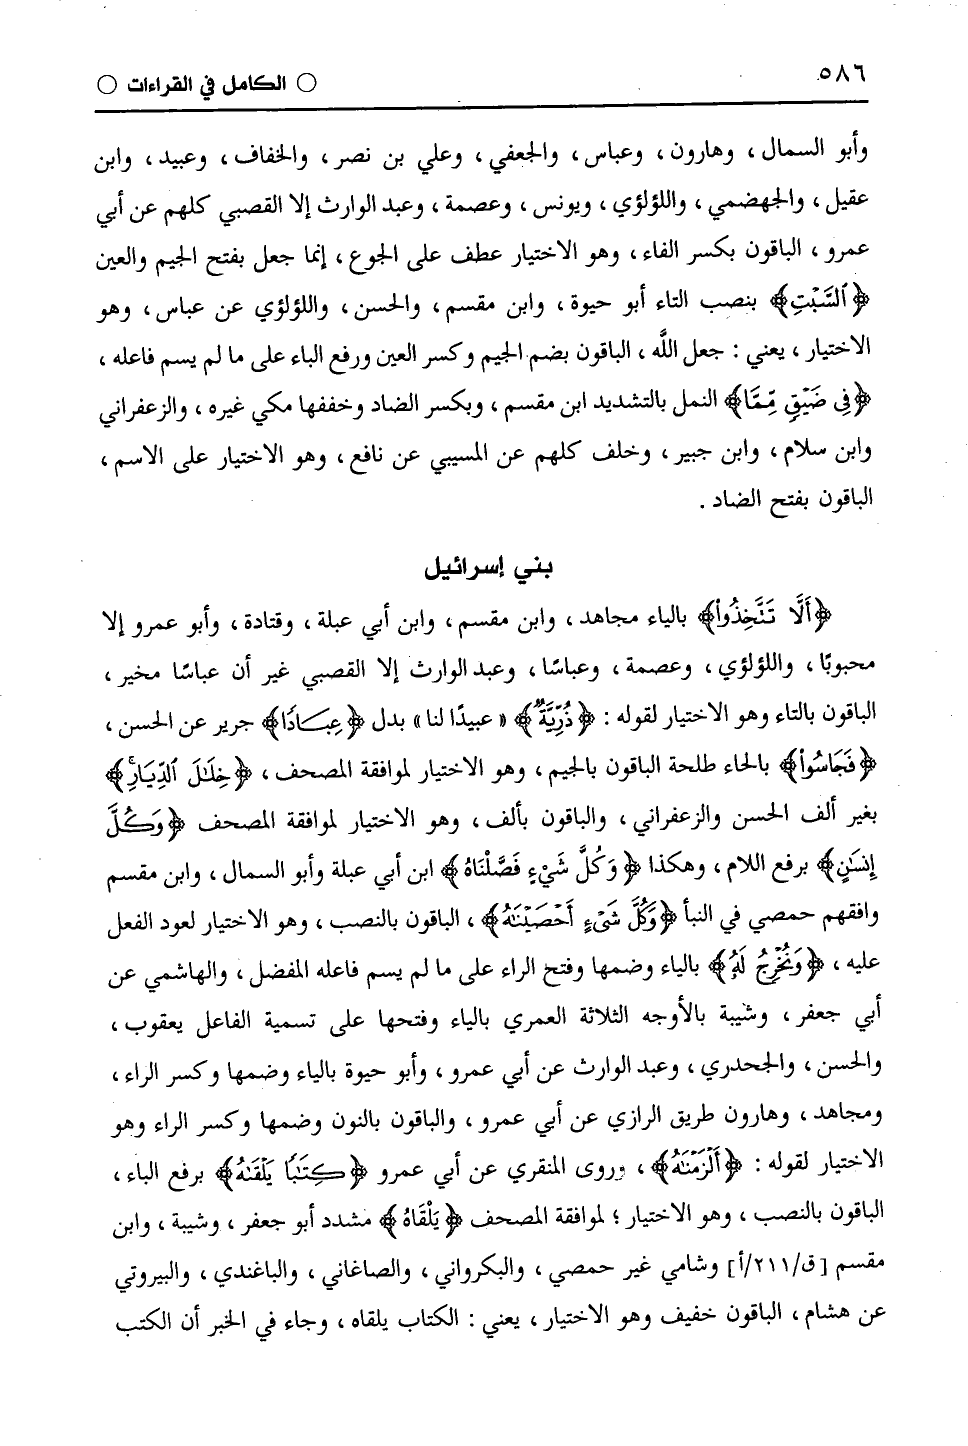 ٥٨٦
○ الكامل في القراءات ○
وأبو السمال ، وهارون ، وعباس ، والجعفي ، وعلي بن نصر ، والخفاف ، وعبيد ، وابن
عقيل ، والجهضمي ، واللؤلؤي ، ويونس ، وعصمة ، وعبد الوارث إلا القصبي كلهم عن أبي
عمرو ، الباقون بكسر الفاء ، وهو الاختيار عطف على الجوع ، إنما جعل بفتح الجيم والعين
﴿ٱلسَّبْتِ﴾ بنصب التاء أبو حيوة ، وابن مقسم ، والحسن ، واللؤلؤي عن عباس ، وهو
الاختيار ، يعني : جعل اللَّه ، الباقون بضم الجيم وكسر العين ورفع الباء على ما لم يسم فاعله ،
﴿فِى ضَيْقٍ مِّمَّا﴾ النمل بالتشديد ابن مقسم ، وبكسر الضاد وخففها مكي غيره ، والزعفراني
وابن سلام ، وابن جبير ، وخلف كلهم عن المسيبي عن نافع ، وهو الاختيار على الاسم ،
الباقون بفتح الضاد .
بني إسرائيل
﴿أَلَّا تَتَّخِذُوا۟﴾ بالياء مجاهد ، وابن مقسم ، وابن أبي عبلة ، وقتادة ، وأبو عمرو إلا
محبوبًا ، واللؤلؤي ، وعصمة ، وعباسًا ، وعبد الوارث إلا القصبي غير أن عباسًا مخير ،
الباقون بالتاء وهو الاختيار لقوله : ﴿ذُرِّيَّةَ﴾ « عبيدًا لنا » بدل ﴿عِبَادًا﴾ جرير عن الحسن ،
﴿فَجَاسُوا۟﴾ بالحاء طلحة الباقون بالجيم ، وهو الاختيار لموافقة المصحف ، ﴿خِلَٰلَ ٱلدِّيَارِ ۚ﴾
بغير ألف الحسن والزعفراني ، والباقون بألف ، وهو الاختيار لموافقة المصحف ﴿وَكُلَّ
إِنسَٰنٍ﴾ برفع اللام ، وهكذا ﴿وَكُلَّ شَيْءٍ فَصَّلْنَاهُ﴾ ابن أبي عبلة وأبو السمال ، وابن مقسم
وافقهم حمصي في النبأ ﴿وَكُلَّ شَىْءٍ أَحْصَيْنَٰهُ﴾ ، الباقون بالنصب ، وهو الاختيار لعود الفعل
عليه ، ﴿وَنُخْرِجُ لَهُۥ﴾ بالياء وضمها وفتح الراء على ما لم يسم فاعله المفضل ، والهاشمي عن
أبي جعفر ، وشيبة بالأوجه الثلاثة العمري بالياء وفتحها على تسمية الفاعل يعقوب ،
والحسن ، والجحدري ، وعبد الوارث عن أبي عمرو ، وأبو حيوة بالياء وضمها وكسر الراء ،
ومجاهد ، وهارون طريق الرازي عن أبي عمرو ، والباقون بالنون وضمها وكسر الراء وهو
الاختيار لقوله : ﴿أَلْزَمْنَٰهُ﴾ ، وروى المنقري عن أبي عمرو ﴿كِتَٰبًا يَلْقَىٰهُ﴾ برفع الباء ،
الباقون بالنصب ، وهو الاختيار ؛ لموافقة المصحف ﴿يَلْقَاهُ﴾ مشدد أبو جعفر ، وشيبة ، وابن
مقسم [ق/٢١١/أ] وشامي غير حمصي ، والبكرواني ، والصاغاني ، والباغندي ، والبيروتي
عن هشام ، الباقون خفيف وهو الاختيار ، يعني : الكتاب يلقاه ، وجاء في الخبر أن الكتب